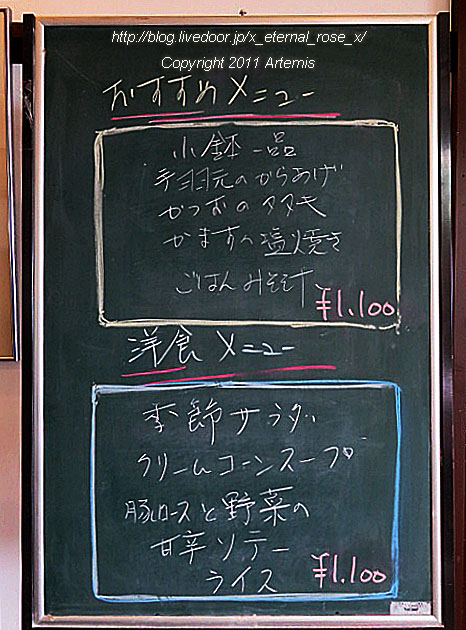 http://blog.livedoor.jp/x_eternal_rose_x/
Copyright 2011 Artemis
おすすめメニュー
小鉢一品
手羽元のからあげ
かつおのタタキ
かますの塩焼き
ごはんみそ汁
¥1.100
洋食メニュー
季節サラダ
クリームコーンスープ
豚ロースと野菜の
甘辛ソテー
ライス
¥1.100